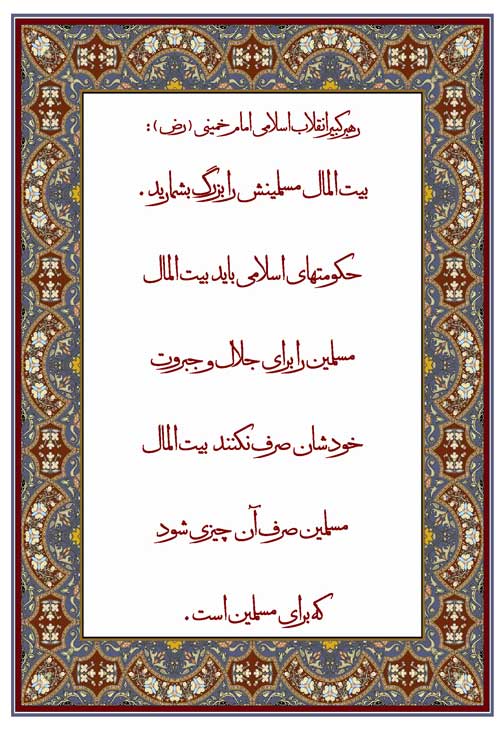 رهبر کبیر انقلاب اسلامی امام خمینی (رض) :
بیت المال مسلمینش را بزرگ بشمارید .
حکومتهای اسلامی باید بیت المال
مسلمین را برای جلال و جبروت
خودشان صرف نکنند بیت المال
مسلمین صرف آن چیزی شود
که برای مسلمین است .